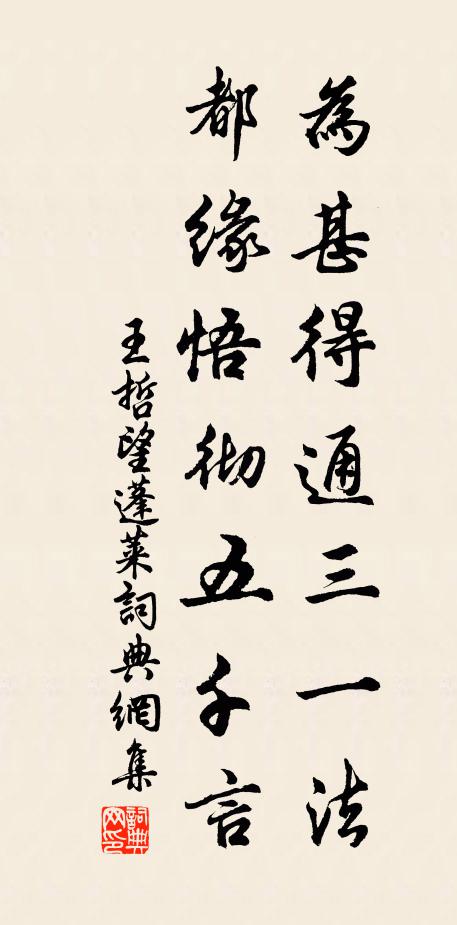 為甚得通三一法
都緣悟徹五千言
王哲望蓬萊詞典網集
詞典網印